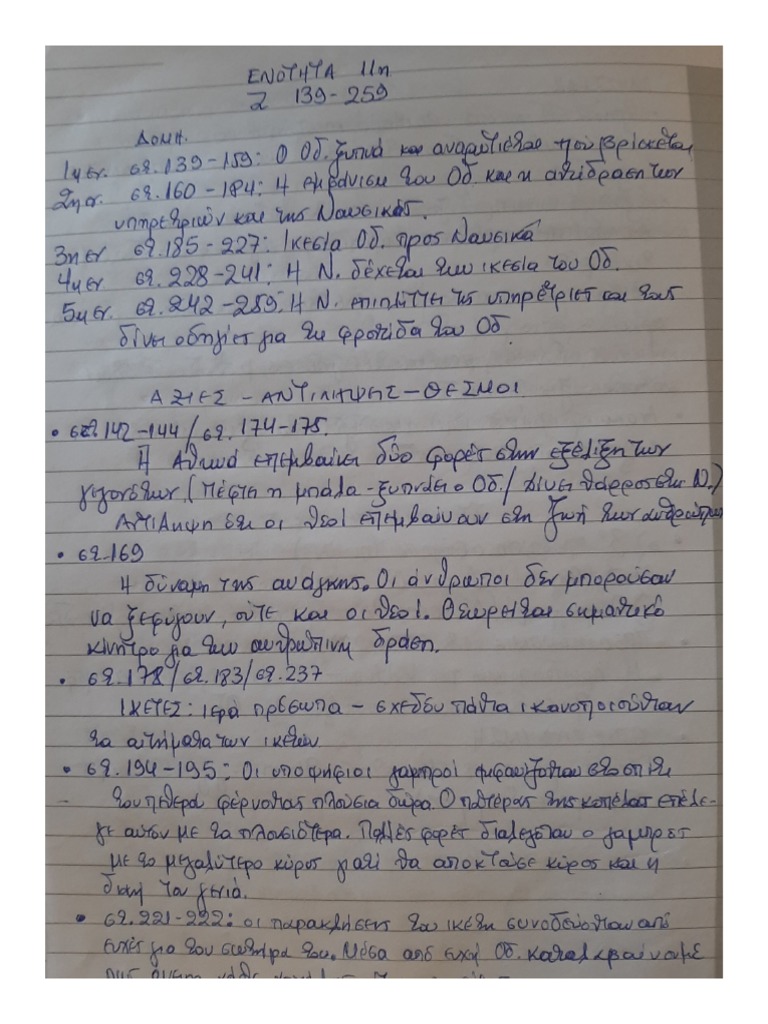 ΕΝΟΤΗΤΑ 11η
ζ 139-259
ΔΟΜΗ.
1η εν. στ. 139-159: Ο Οδ. ξυπνά και αναρωτιέται που βρίσκεται
2η εν. στ. 160-184: Η εμφάνιση του Οδ. και η αντίδραση των
υπηρετριών και της Ναυσικάς.
3η εν στ. 185-227: Ικεσία Οδ. προς Ναυσικά
4η εν. στ. 228-241: Η Ν. δέχεται την ικεσία του Οδ.
5η εν. στ. 242-259: Η Ν. επιπλήττει τις υπηρέτριες και τους
δίνει οδηγίες για τη φροντίδα του Οδ.
ΑΞΙΕΣ - ΑΝΤΙΛΗΨΕΙΣ - ΘΕΣΜΟΙ
• στ. 142-144 / στ. 174-175.
Η Αθηνά επεμβαίνει δύο φορές στην εξέλιξη των
γεγονότων. (Πέφτει η μπάλα - ξυπνάει ο Οδ. / Δίνει θάρρος στη Ν.)
Αντίληψη ότι οι θεοί επεμβαίνουν στη ζωή των ανθρώπων
• στ. 169
Η δύναμη της ανάγκης. Οι άνθρωποι δεν μπορούσαν
να ξεφύγουν, ούτε και οι θεοί. Θεωρείται σημαντικό
κίνητρο για την ανθρώπινη δράση.
• στ. 178 / στ. 183 / στ. 237
ΙΚΕΤΕΣ: ιερά πρόσωπα - σχεδόν πάντα ικανοποιούνταν
τα αιτήματα των ικετών
• στ. 194-195: Οι υποψήφιοι γαμπροί εμφανίζονταν στο σπίτι
του πεθερά φέρνοντας πλούσια δώρα. Ο πατέρας της κοπέλας επέλε-
γε αυτόν με τα πλουσιότερα. Πολλές φορές διαλεγόταν ο γαμπρός
με το μεγαλύτερο κύρος γιατί θα αποκτούσε κύρος και η
δική του γενιά.
• στ. 221-222: οι παρακλήσεις του ικέτη συνοδεύονταν από
ευχές για τον σωτήρα του. Μέσα από ευχή Οδ. καταλαβαίνουμε